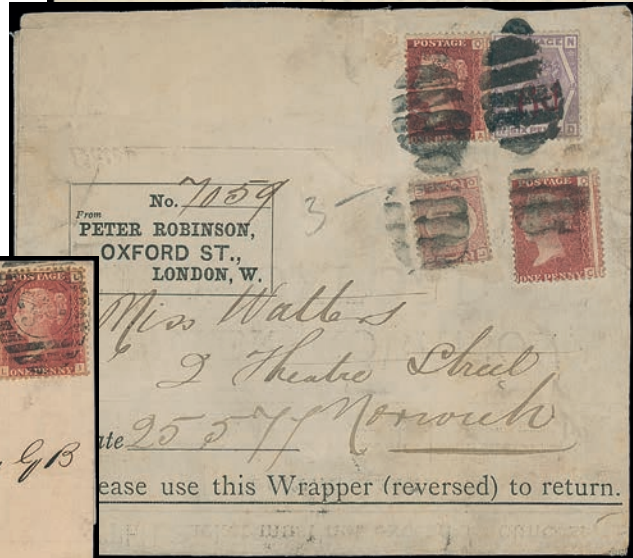 POSTAGE
No. 7059
From
PETER ROBINSON,
OXFORD ST.,
LONDON, W.
3
POSTAGE
ONE PENNY
Miss Walters
2 Theatre Street
Norwich
ate 25 5 77
ease use this Wrapper (reversed) to return.
ONE PENNY
G B